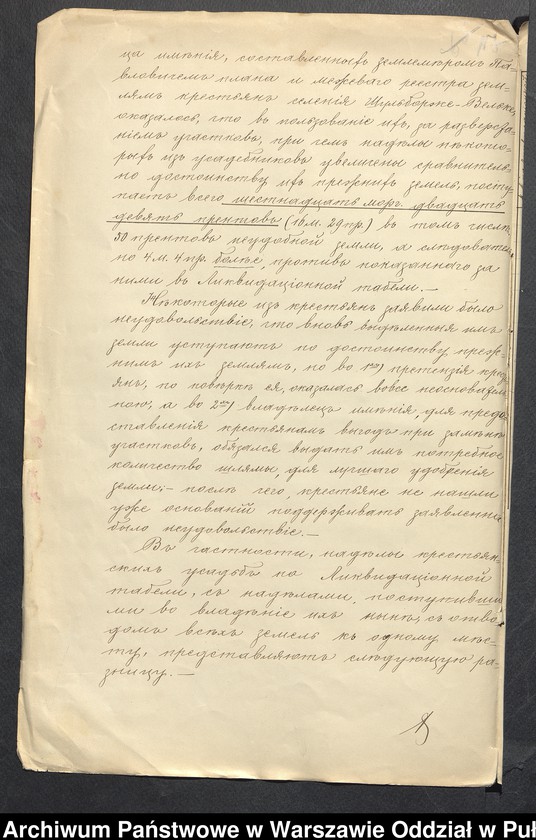 ца имѣнія, составленныхъ землемѣромъ Па-
вловичемъ плана и межеваго реестра, зем-
лямъ крестьянъ селенія Шульборже-Вельке,
оказалось, что въ пользованіе ихъ, за разверста-
ніемъ участковъ, при чемъ надѣлы нѣкото-
рыхъ изъ усадебниковъ увеличены сравнитель-
но достоинству ихъ прежнихъ земель, посту-
паетъ всего шестнадцать морг. двадцать
девять прентовъ (16 м. 29 пр.) въ томъ числѣ
30 прентовъ неудобной земли, а слѣдователь-
но 4 м. 4 пр. болѣе, противъ показаннаго за
ними въ Ликвидаціонной табели. —
Нѣкоторые изъ крестьянъ заявили было
неудовольствіе, что вновь выдѣленныя имъ
земли уступаютъ по достоинству преж-
нимъ ихъ землямъ, но во 1хъ) претензія кресть-
янъ, по повѣркѣ ея, оказалась вовсе неоснователь-
ною, а во 2хъ) владѣлецъ имѣнія, для предо-
ставленія крестьянамъ выгодъ при замѣнѣ
участковъ, обязался выдать имъ потребное
количество шлямы, для лучшаго удобренія
земли; — послѣ чего, крестьяне не нашли
уже основаній поддерживать заявленное
было неудовольствіе. —
Въ частности, надѣлы крестьян-
скихъ усадьбъ по Ликвидаціонной
табели, съ надѣлами, поступившими
во владѣніе ихъ нынѣ, съ отво-
домъ всѣхъ земель къ одному мѣс-
ту, представляютъ слѣдующую ра-
зницу. —
Archiwum Państwowe w Warszawie Oddział w Puł